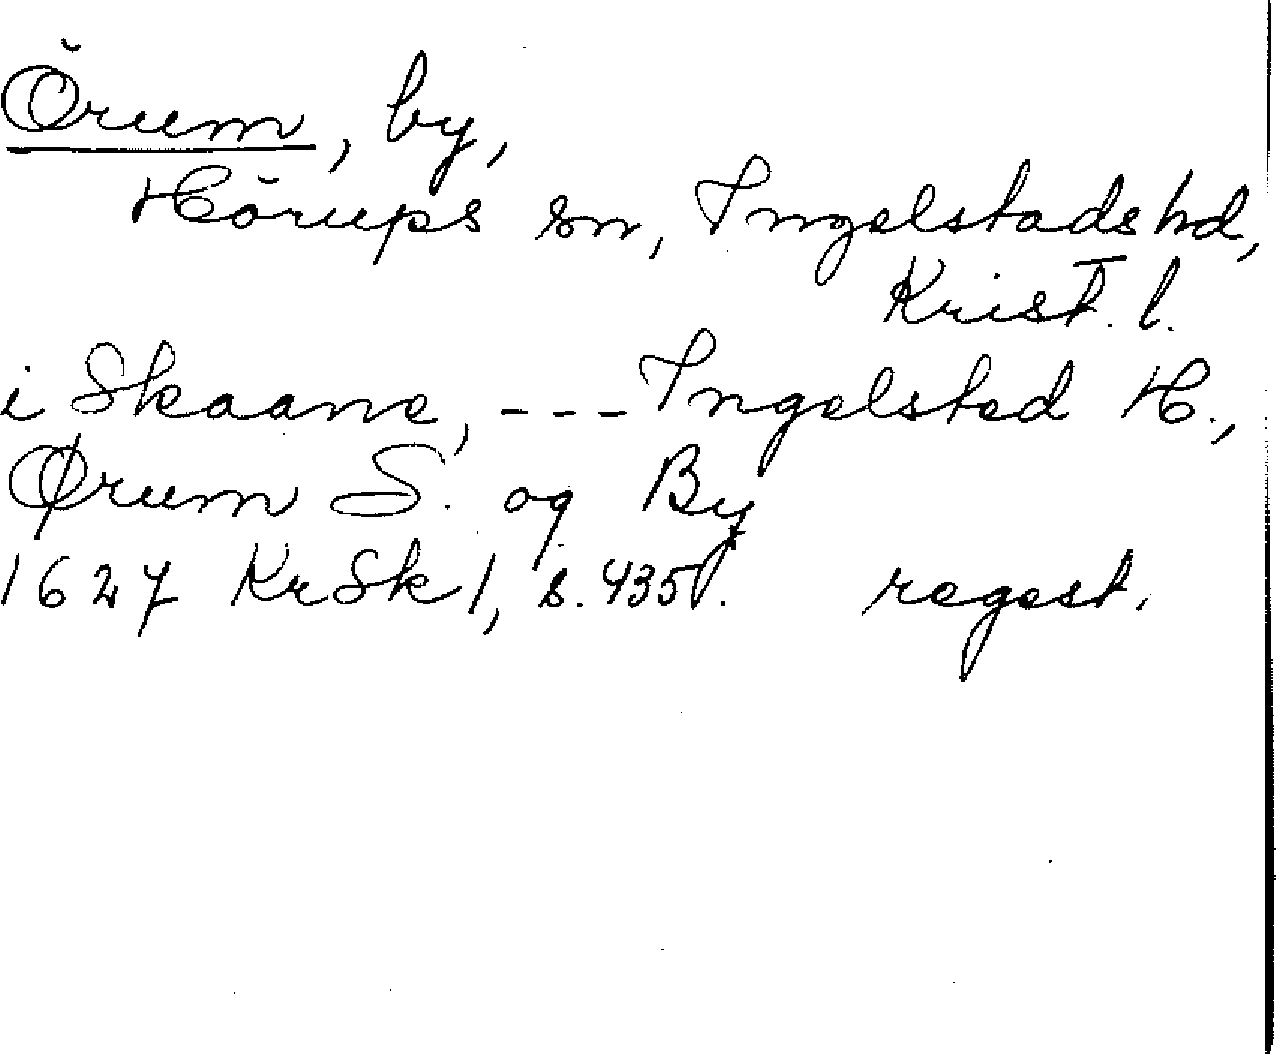 Örum, by,
Hörups sn, Ingelstads hd,
Krist. l.
i Skaane, --- Ingelsted H.,
Ørum S. og By
1627 KrSk 1, s. 435. regest.